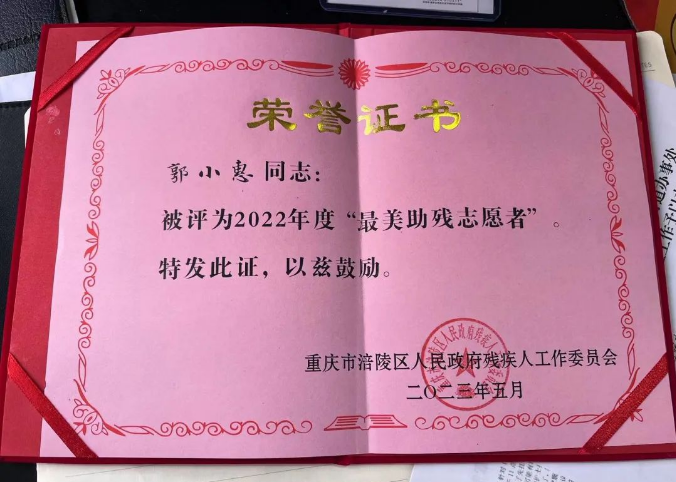 荣誉证书
郭小惠同志：
被评为2022年度“最美助残志愿者”。
特发此证，以兹鼓励。
重庆市涪陵区人民政府残疾人工作委员会
二〇二三年五月